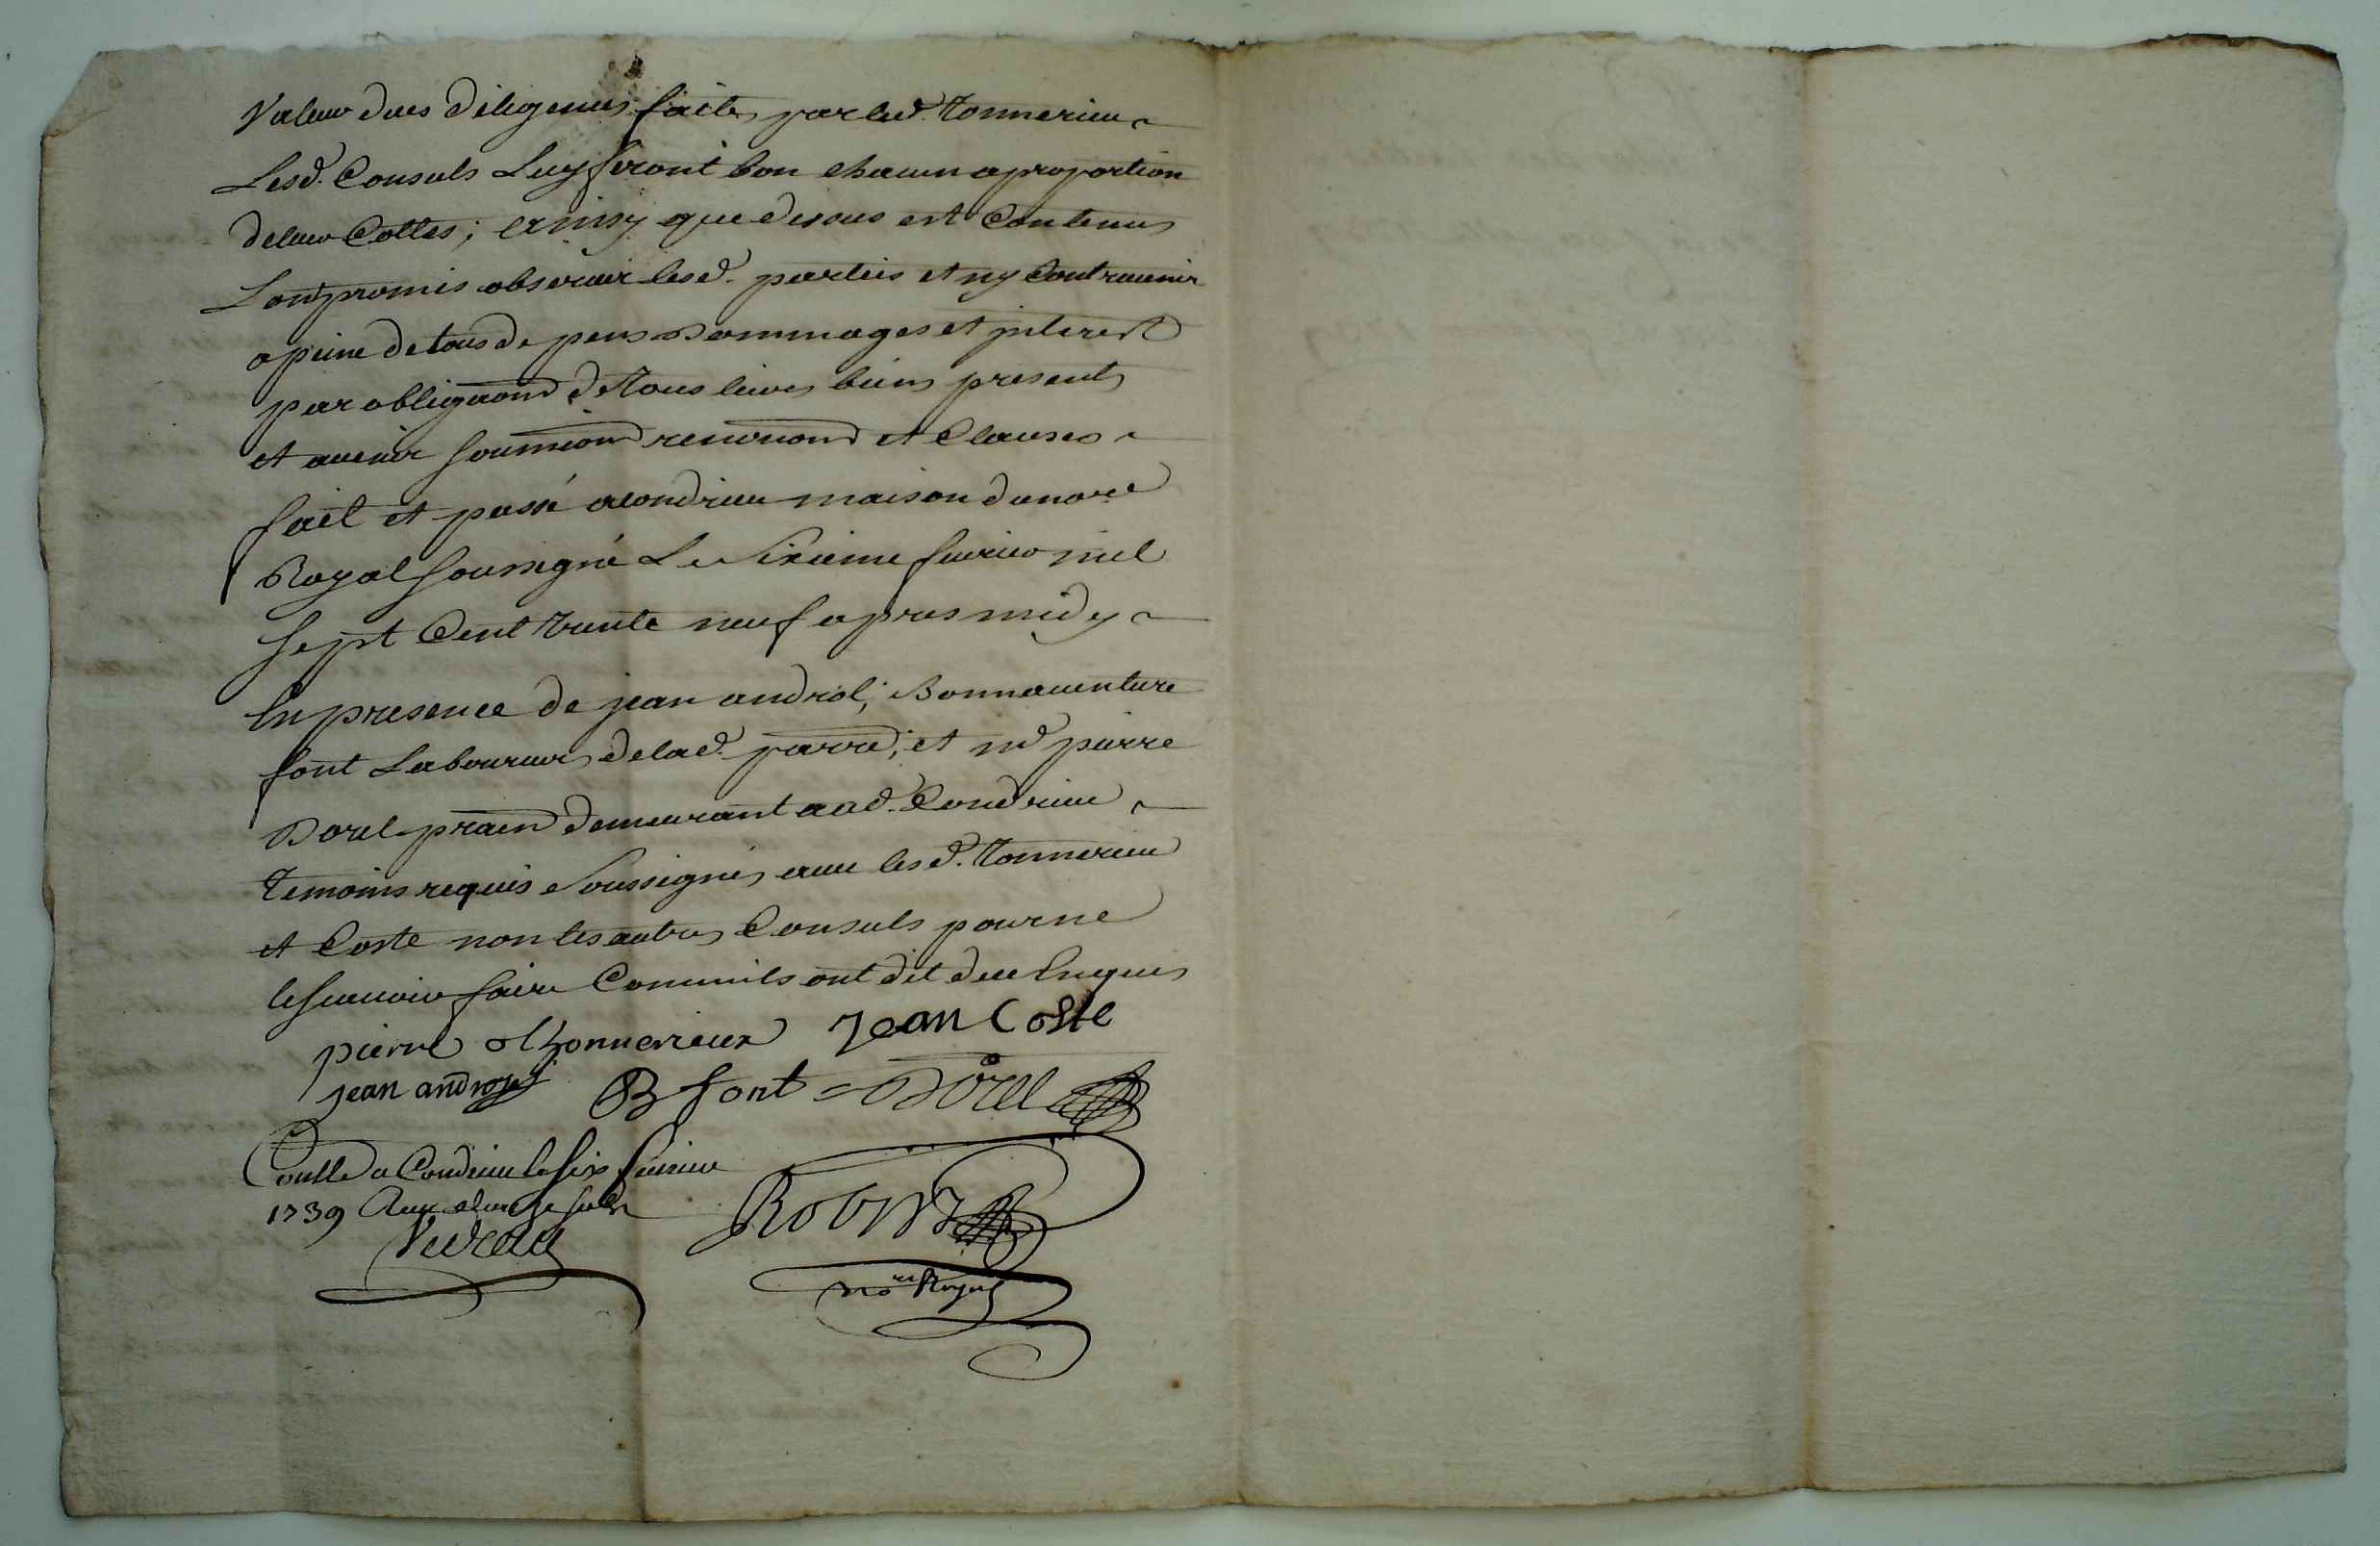 Valeur dues diligences faites par led. Tonnerieu
Lesd. Consuls Luy feront bon chacun aproportion
de leur Cottes; ainsy que dessus est Contenus
Lont promis observer lesd. parties et ny Contrauenir
a peine de tous depens dommages et jnterest
par obligaond de tous leurs biens presents
et auenir soumiond renonond et Clauses
fait et passé a Condrieu maison du nore
Royal soussigné Le Sixieme feurier mil
Sept Cent trente neuf apres midy
En presence de jean androl, Bonnauenture
font Laboureurs de lad. parre; et me pierre
Dorel pratn demeurant aud. Condrieu
Temoins requis Soussignes auec lesd. Tonnerieu
et Coste non les autres Consuls pour ne
le scauoir faire Comm'ils ont dit de ce Enquis
pierre thonnerieux Jean Coste
jean androl B font Dorel
Conlle a Condrieu le six feurier
1739 Reçu sols
Robert
nore Royal